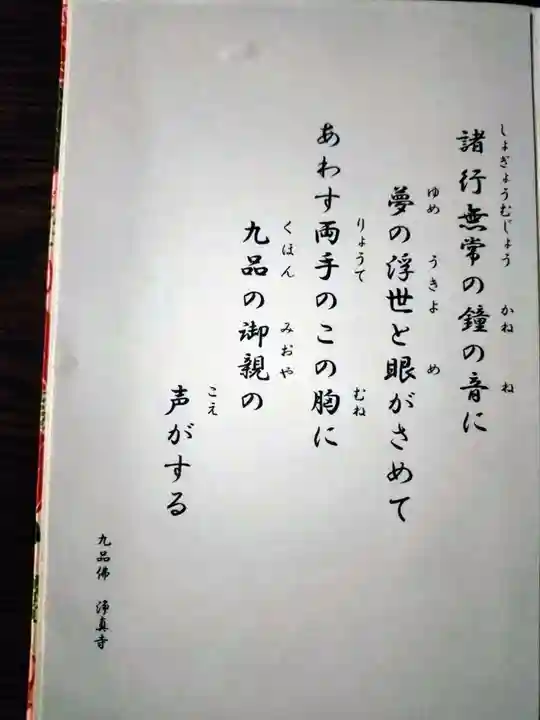 しょぎょうむじょう　かね　ね
諸行無常の鐘の音に
ゆめ　うきよ　め
夢の浮世と眼がさめて
りょうて　むね
あわす両手のこの胸に
くほん　みおや
九品の御親の
こえ
声がする
九品佛　浄真寺